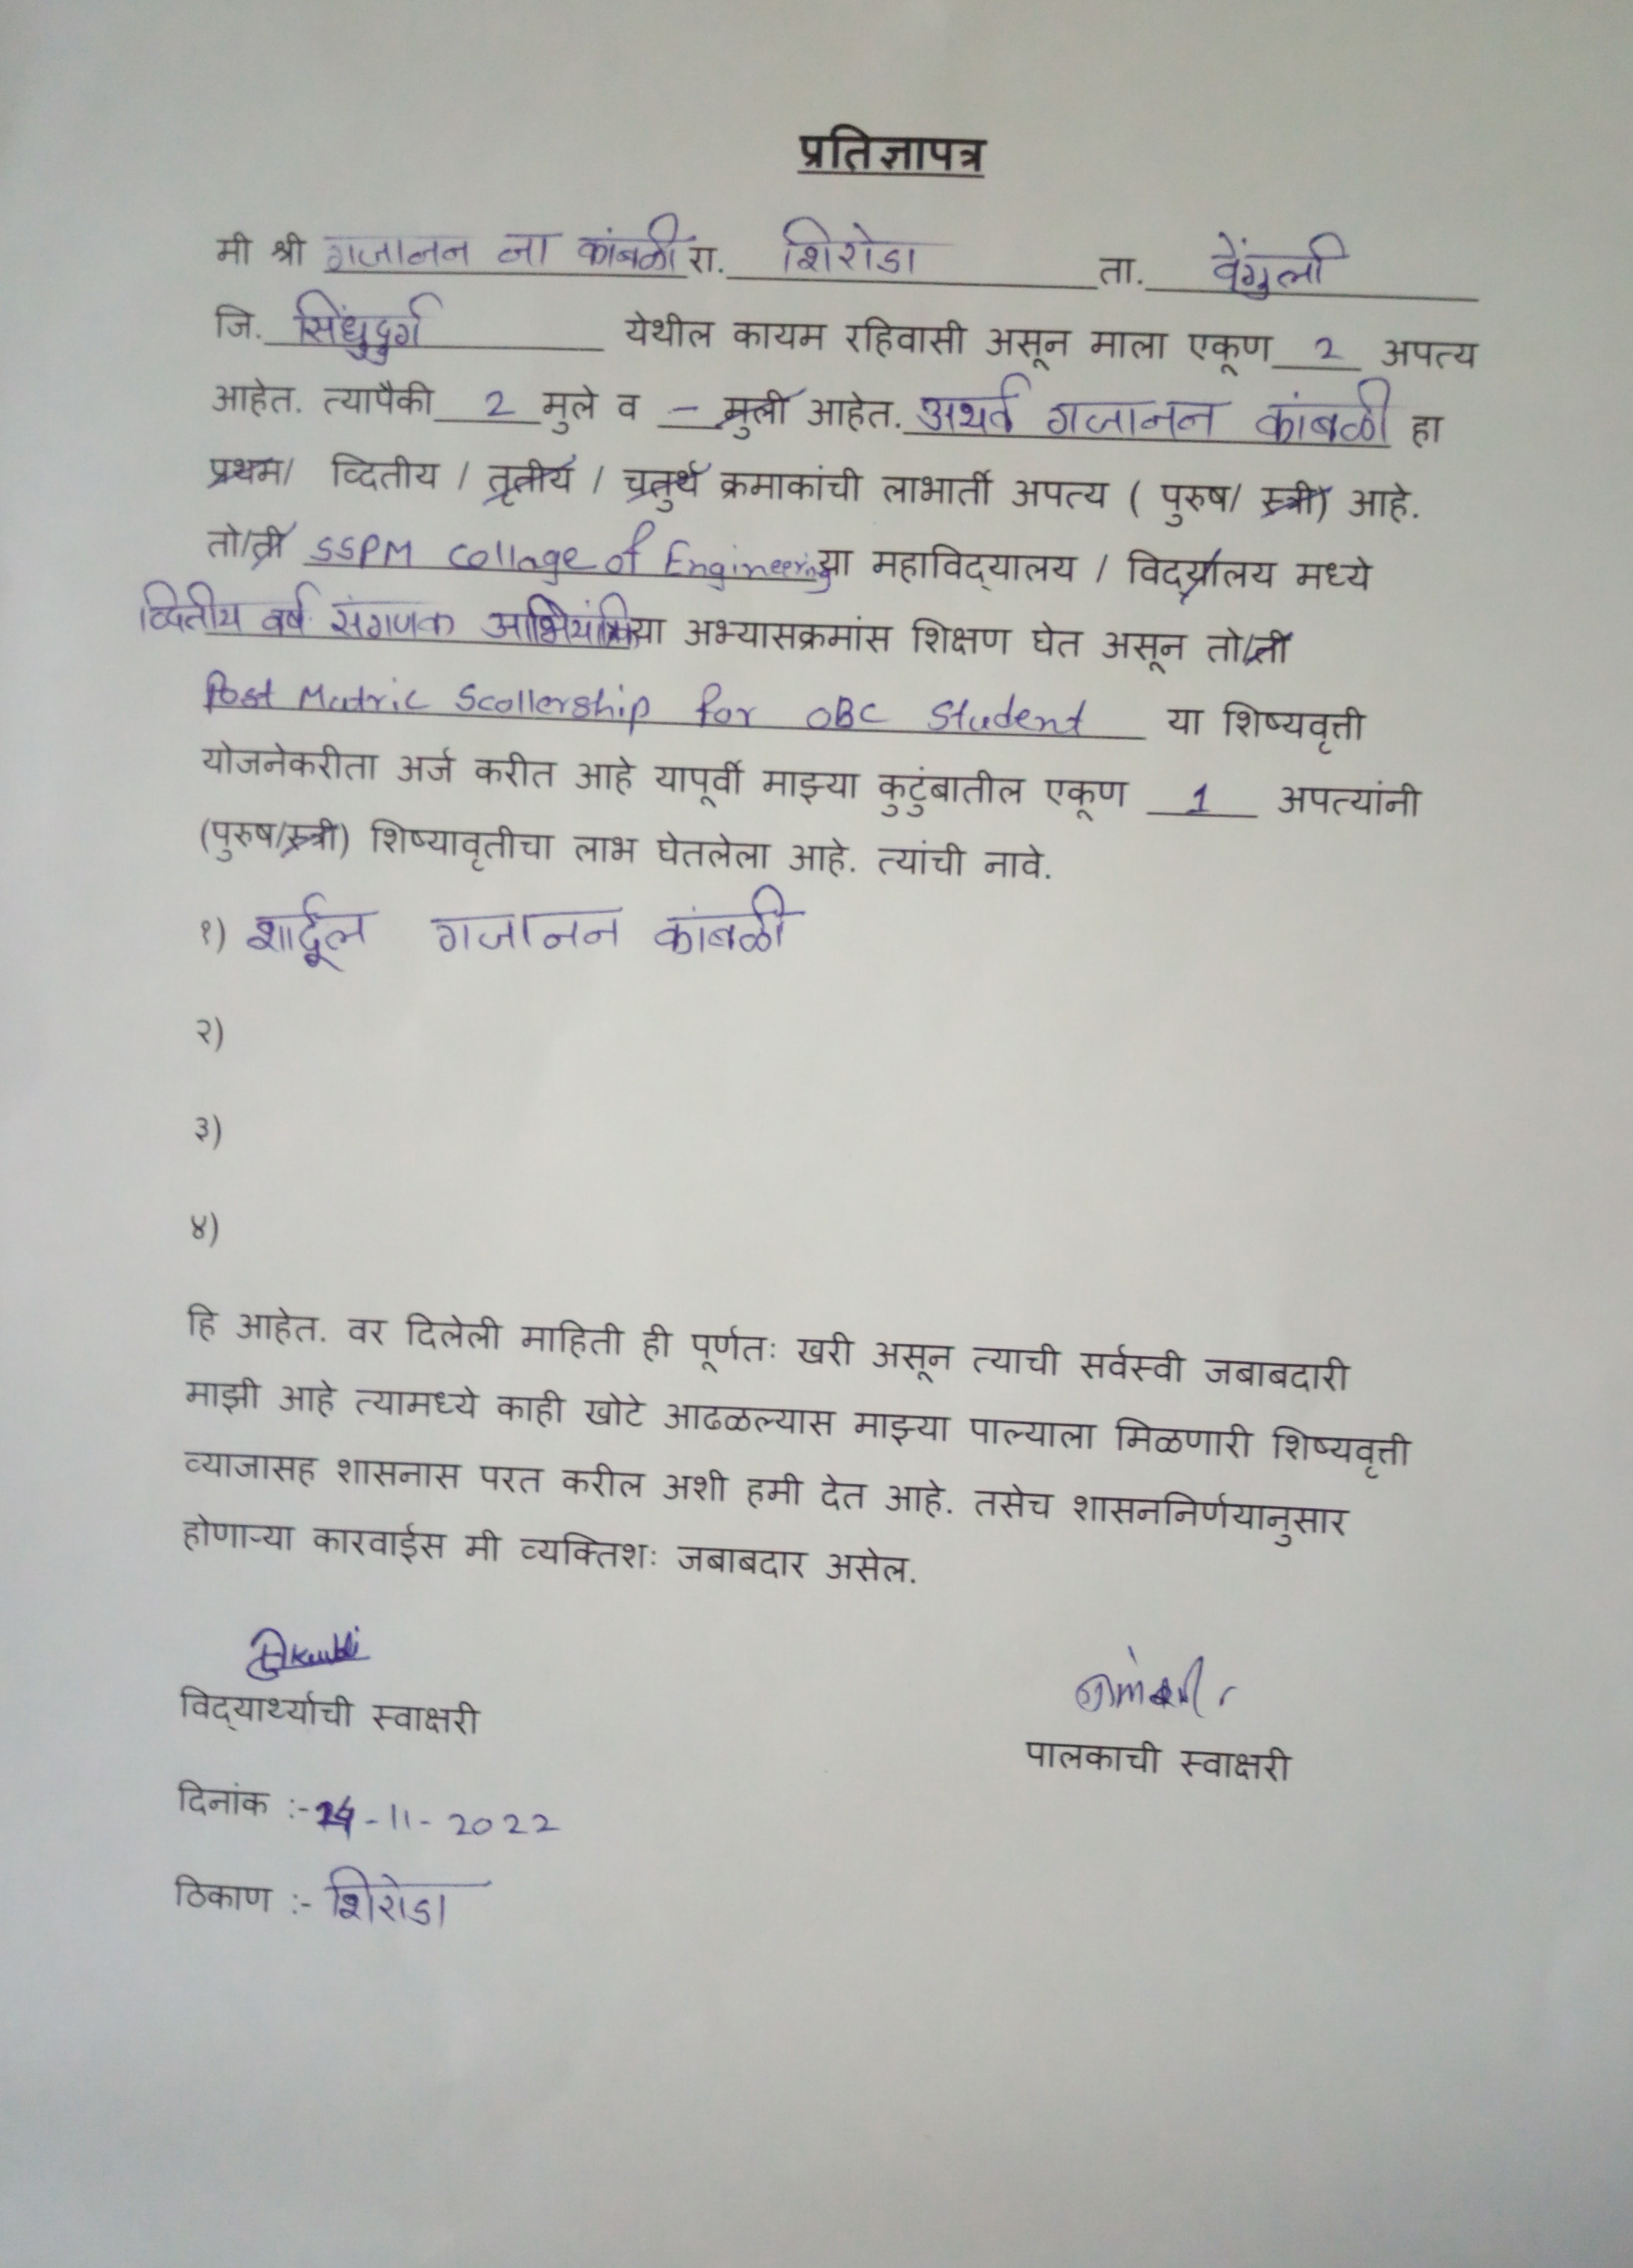 प्रतिज्ञापत्र
मी श्री गजानन ना कांबळी रा. शिरोडा ता. वेंगुर्ला
जि. सिंधुदुर्ग येथील कायम रहिवासी असून माला एकूण 2 अपत्य
आहेत. त्यापैकी 2 मुले व - मुली आहेत. अथर्व गजानन कांबळी हा
प्रथम/ व्दितीय / तृतीय / चतुर्थ क्रमाकांची लाभार्ती अपत्य ( पुरुष/ स्त्री) आहे.
तो/ती SSPM Collage of Engineering या महाविद्यालय / विद्यालय मध्ये
व्दितीय वर्ष संगणक अभियांत्रिकी या अभ्यासक्रमांस शिक्षण घेत असून तो/ती
Post Matric Scollership for OBC Student या शिष्यवृत्ती
योजनेकरीता अर्ज करीत आहे यापूर्वी माझ्या कुटुंबातील एकूण 1 अपत्यांनी
(पुरुष/स्त्री) शिष्यावृतीचा लाभ घेतलेला आहे. त्यांची नावे.
१) शार्दूल गजानन कांबळी
२)
३)
४)
हि आहेत. वर दिलेली माहिती ही पूर्णतः खरी असून त्याची सर्वस्वी जबाबदारी
माझी आहे त्यामध्ये काही खोटे आढळल्यास माझ्या पाल्याला मिळणारी शिष्यवृत्ती
व्याजासह शासनास परत करील अशी हमी देत आहे. तसेच शासननिर्णयानुसार
होणाऱ्या कारवाईस मी व्यक्तिशः जबाबदार असेल.
विद्यार्थ्याची स्वाक्षरी
पालकाची स्वाक्षरी
दिनांक :- 24-11-2022
ठिकाण :- शिरोडा